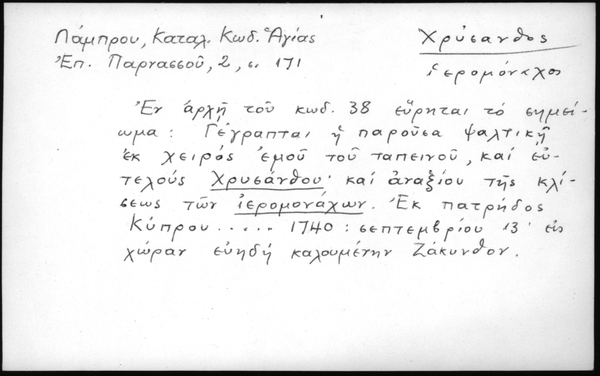 Λάμπρου, Καταλ. Κωδ. Ἁγίας
Ἐπ. Παρνασσοῦ, 2, σ. 171
Χρύσανθος
ἱερομόναχος
Ἐν ἀρχῇ τοῦ κωδ. 38 εὕρηται τὸ σημεί-
ωμα: Γέγραπται ἡ παροῦσα ψαλτικὴ
ἐκ χειρός ἐμοῦ τοῦ ταπεινοῦ, καί εὐ-
τελούς Χρυσάνθου· καί ἀναξίου τῆς κλί-
σεως τῶν ἱερομονάχων. Ἐκ πατρήδος
Κύπρου..... 1740: σεπτεμβρίου 13· εἰς
χώραν εὐηδή καλουμένην Ζάκυνθον.